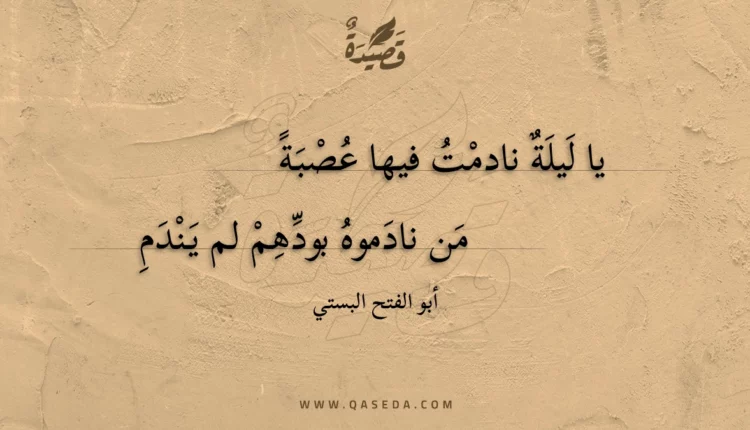 قَصِيدَةٌ
يا لَيلَةٌ نادمْتُ فيها عُصْبَةً
مَن نادَموهُ بودِّهِمْ لم يَنْدَمِ
أبو الفتح البستي
WWW.QASEDA.COM